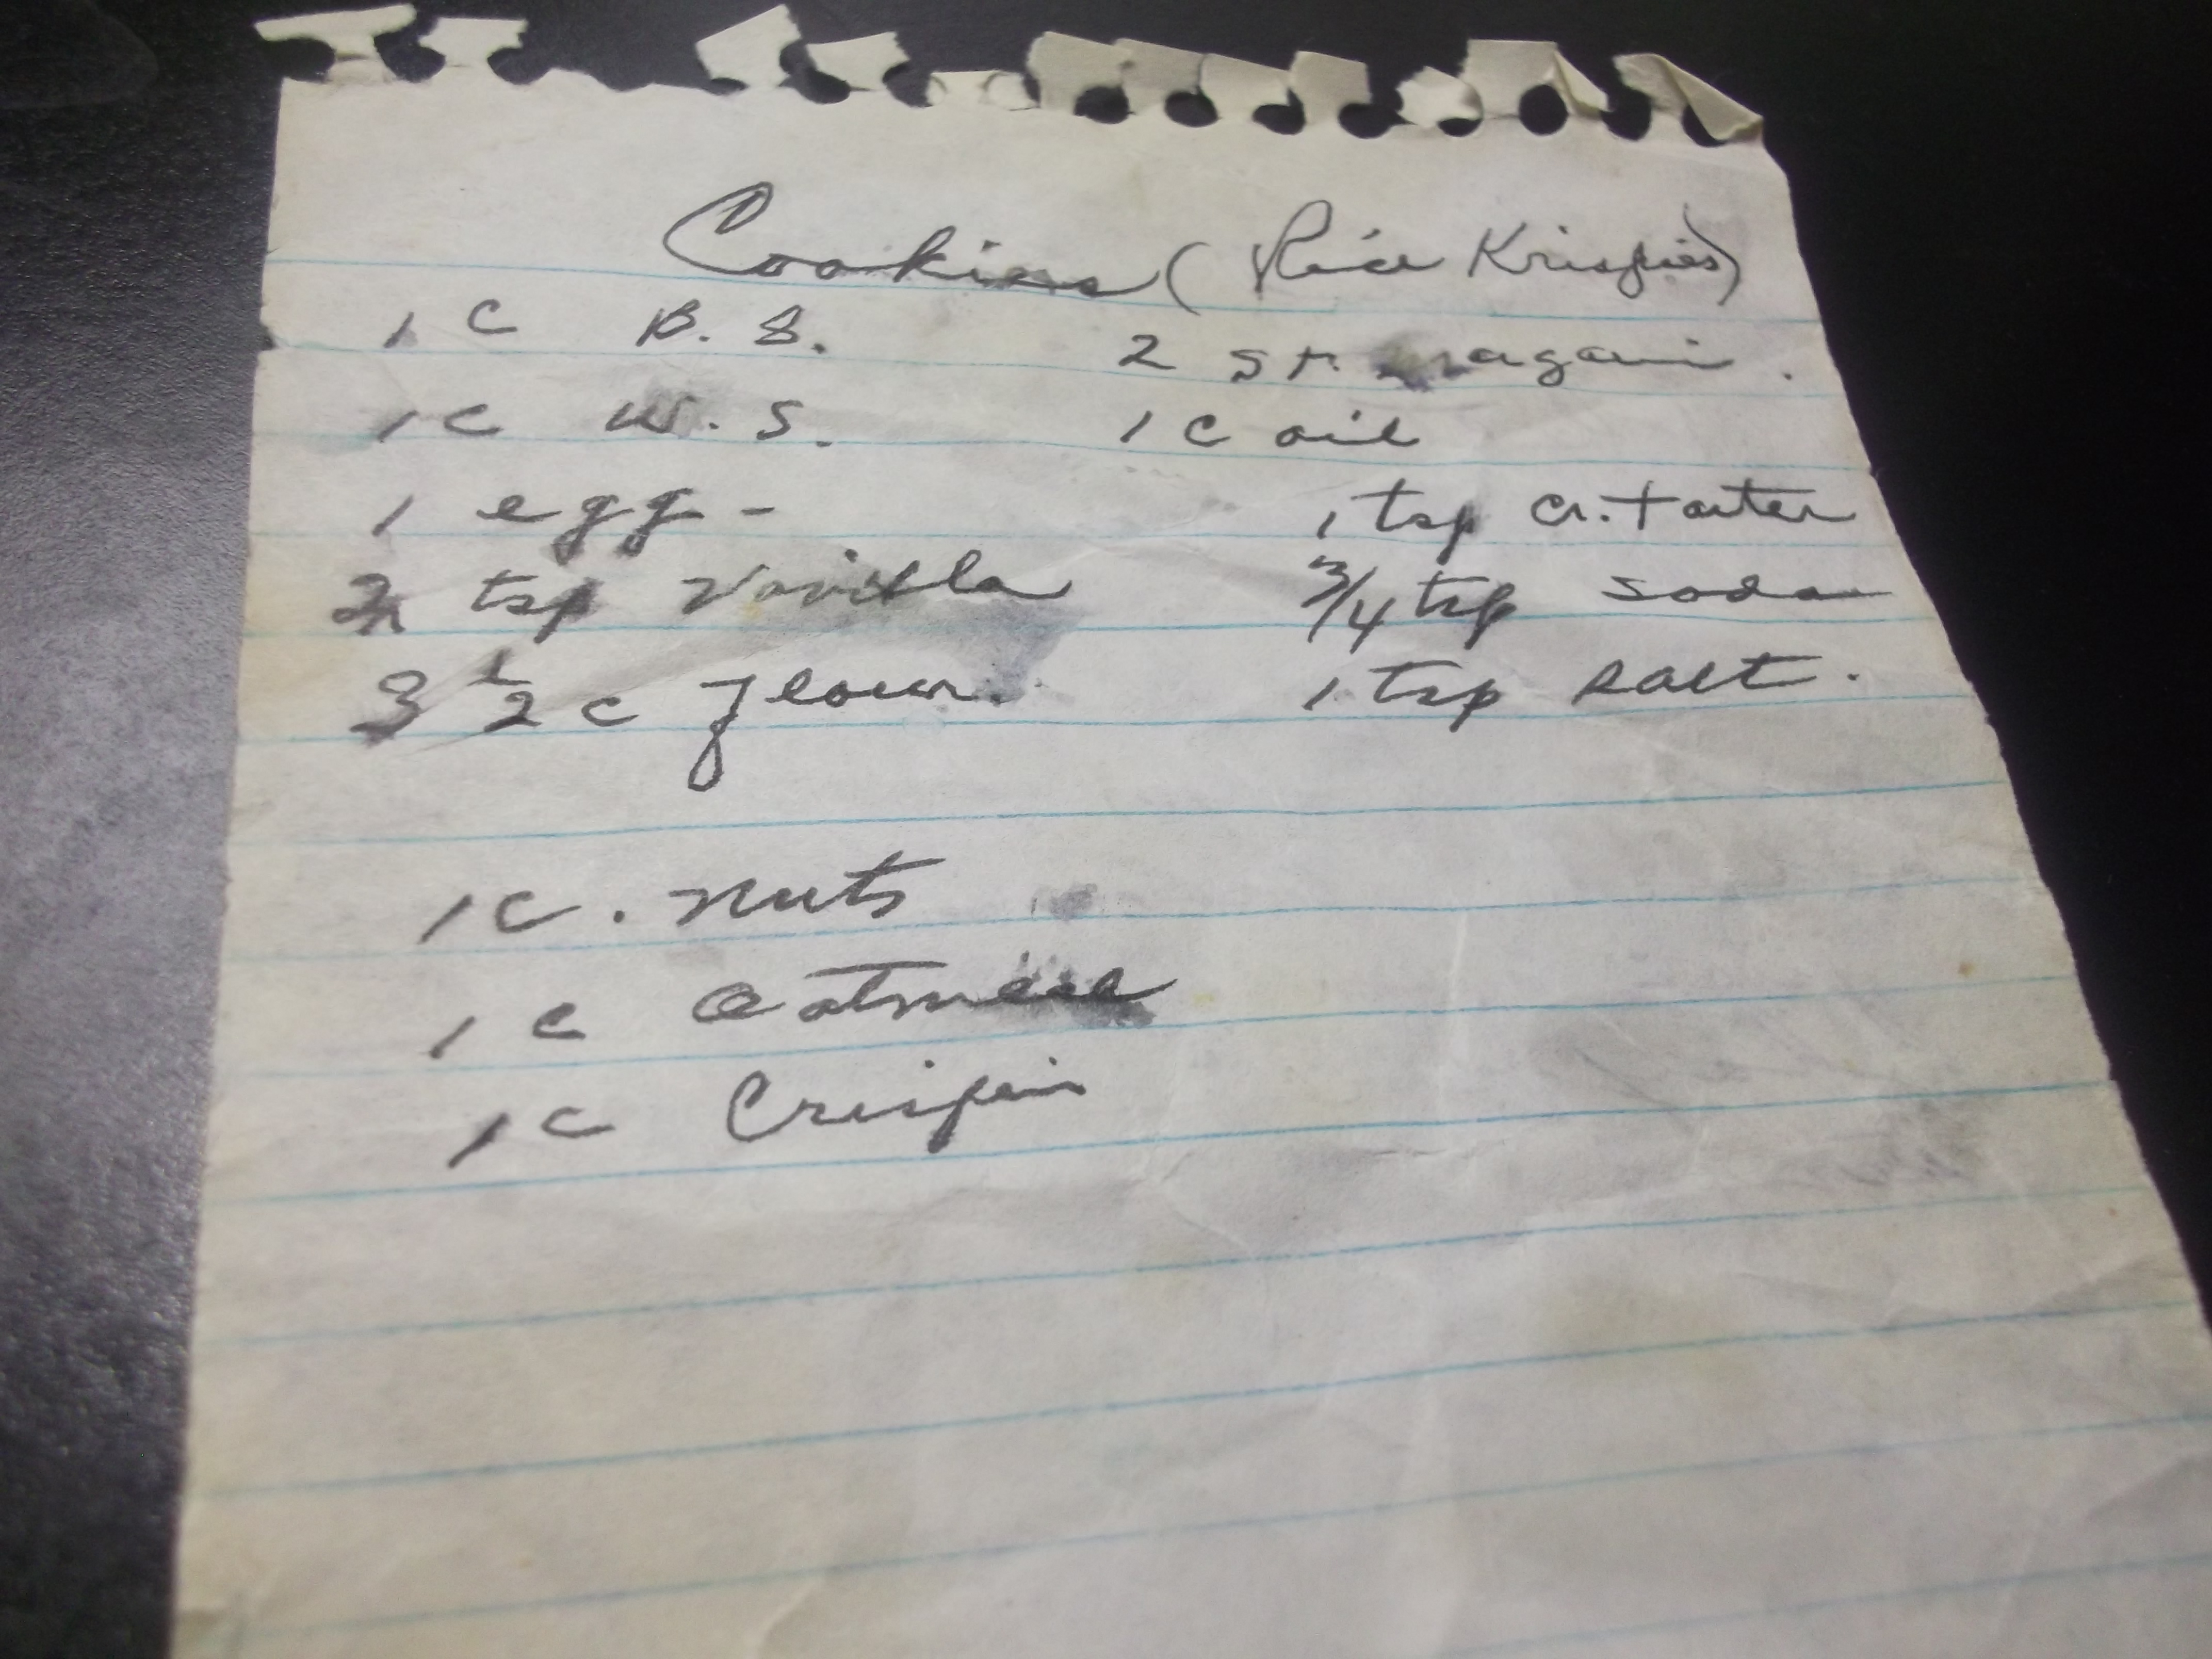 Cookies (Rice Krispies)
1 C B. S. 2 St. magarin.
1 C W. S. 1 C oil
1 egg - 1 tsp cr. tarter
2 tsp Vanilla 3/4 tsp soda
3 1/2 c flour. 1 tsp salt.
1 C. nuts
1 C Oatmeal
1 C Crispin